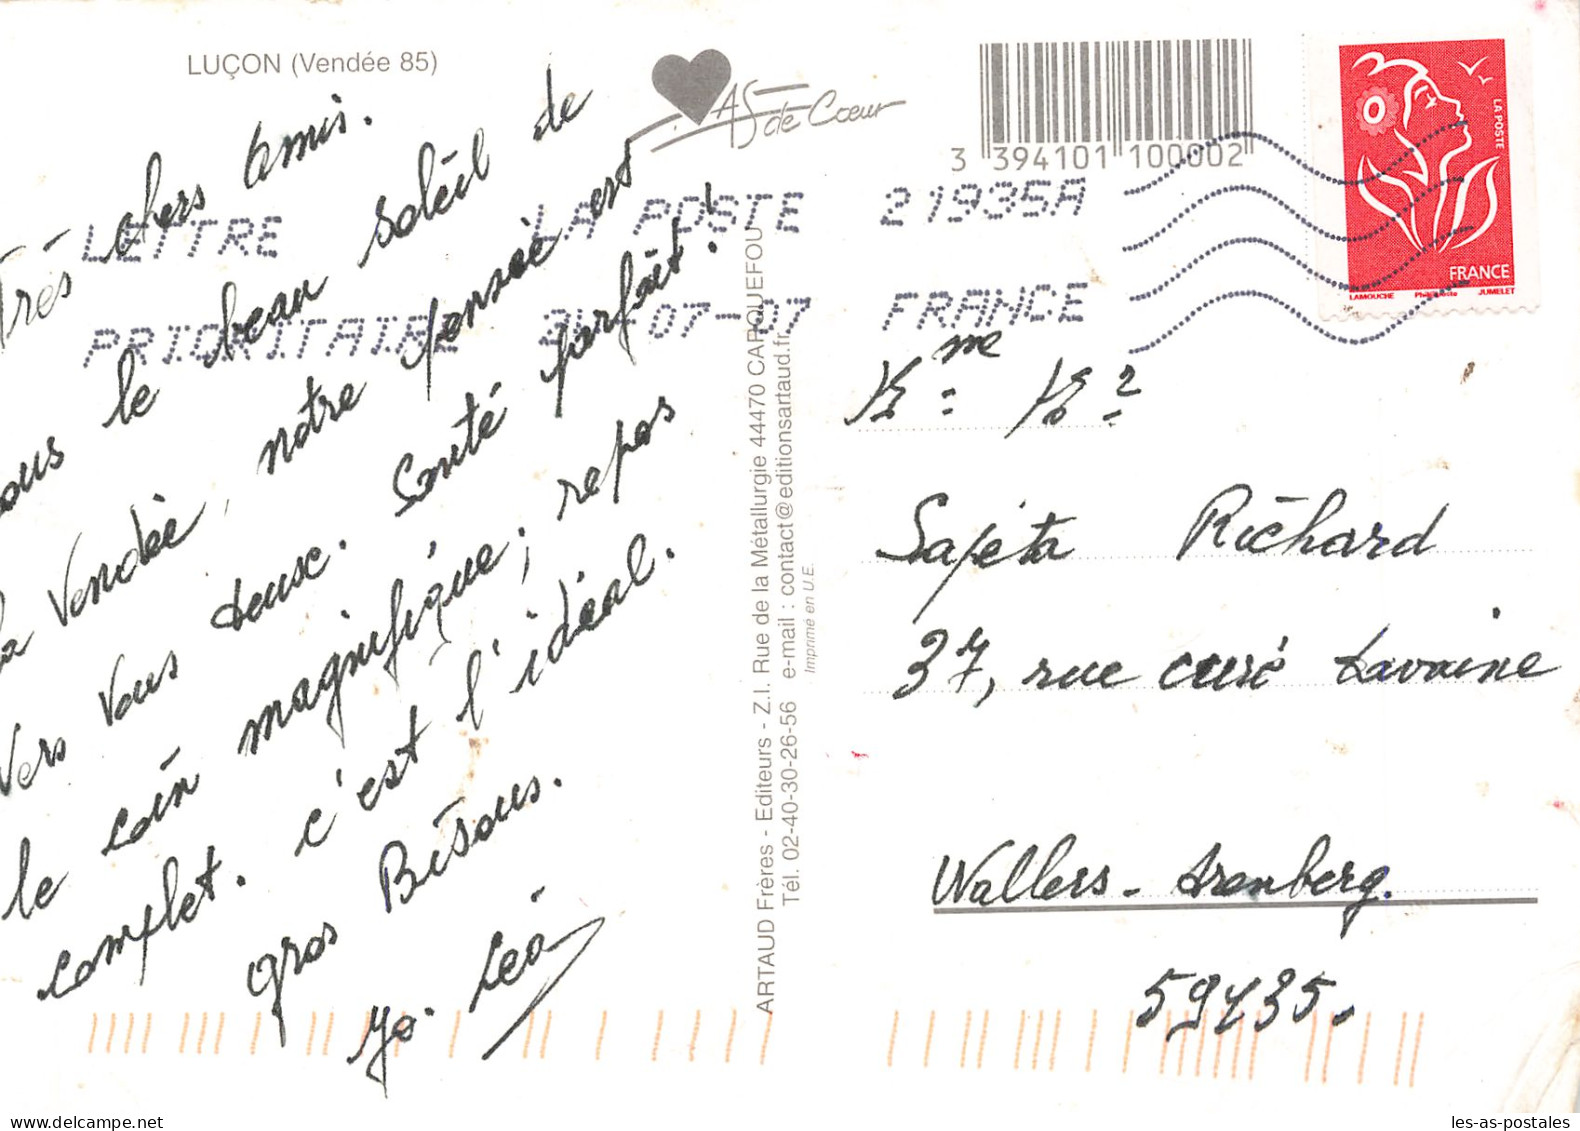 LUÇON (Vendée 85)
AS de Cœur
3 394101 100002
LETTRE LA POSTE 21935A
PRIORITAIRE 07-07 FRANCE
LA POSTE
FRANCE
LAMOUCHE JUMELET
Très chers Amis.
le beau soleil de
la Vendée, notre pensée est
Vers Vous deusc. Santé parfait!
le coin magnifique; repos
complet. c'est l'idéal.
gros Bisous.
Yo. Léo
ARTAUD Frères - Editeurs - Z.I. Rue de la Métallurgie 44470 CARQUEFOU
Tél. 02-40-30-26-56 e-mail : contact@editionsartaud.fr
Imprimé en U.E.
Sajeta Richard
37, rue curé Lavaine
Wallers - Arenberg.
59135.
les-as-postales